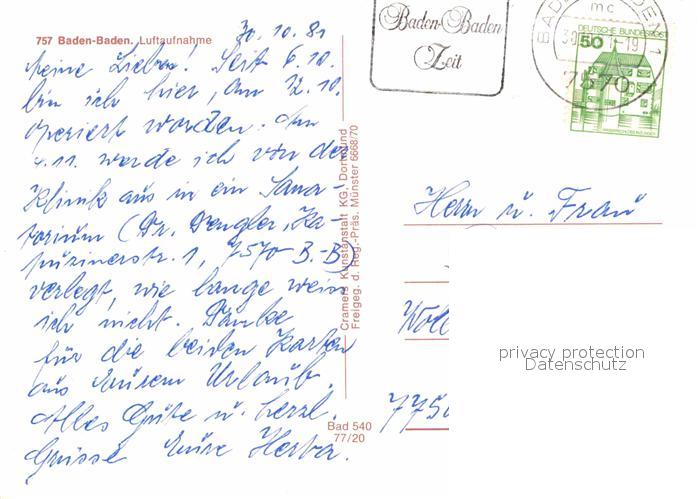 757 Baden-Baden. Luftaufnahme
30.10.81
Meine Lieben! Seit 6.10.
bin ich hier, am 12.10.
operiert worden. Am
4.11. werde ich von der
Klinik aus in ein Sana-
torium (Dr. Dengler, Ka-
puzinerstr. 1, 7570 B.-B)
verlegt, wie lange weiss
ich nicht. Danke
für die beiden Karten
aus Eurem Urlaub.
Alles Gute u. herzl.
Grüsse Eure Herta.
Cramers Kunstanstalt KG. Dortmund
Freigeg. d. Reg.-Präs. Münster 6668/70
Bad 540
77/20
Baden-Baden
Zeit
BADEN-BADEN 1
mc
-19
7570
DEUTSCHE BUNDESPOST
50
Herrn u. Frau
775
privacy protection
Datenschutz